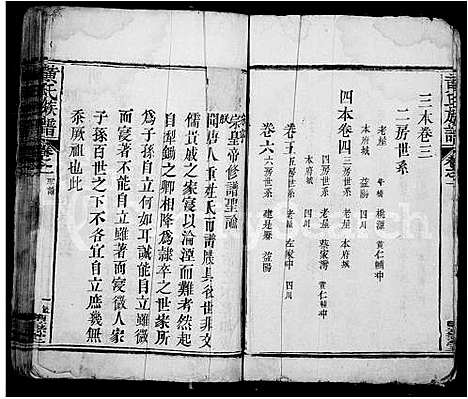 黃氏族譜
卷之一
三本卷三
二房世系
老屋
本府城
桃源
益陽
黃仁輔中
四川
四本卷四
三房世系
本府城
益陽
四房世系
老屋
蔡家灣
黃仁輔中
四川
卷五
五房世系
老屋
左家中
四川
卷六
益陽
宋
宗皇帝修譜聖諭
聞唐人重姓氏而譜牒具後世非文
儒貴戚之家寖以淪湮而難考然起
自犁鋤之卿相降爲隸卒之世家所
爲子孫自立何如耳誠能自立雖微
而寖著不能自立雖著而寖微人家
子孫百世之下不各宜自立庶幾無
忝厥祖也此
黃氏族譜
卷之一
聖諭